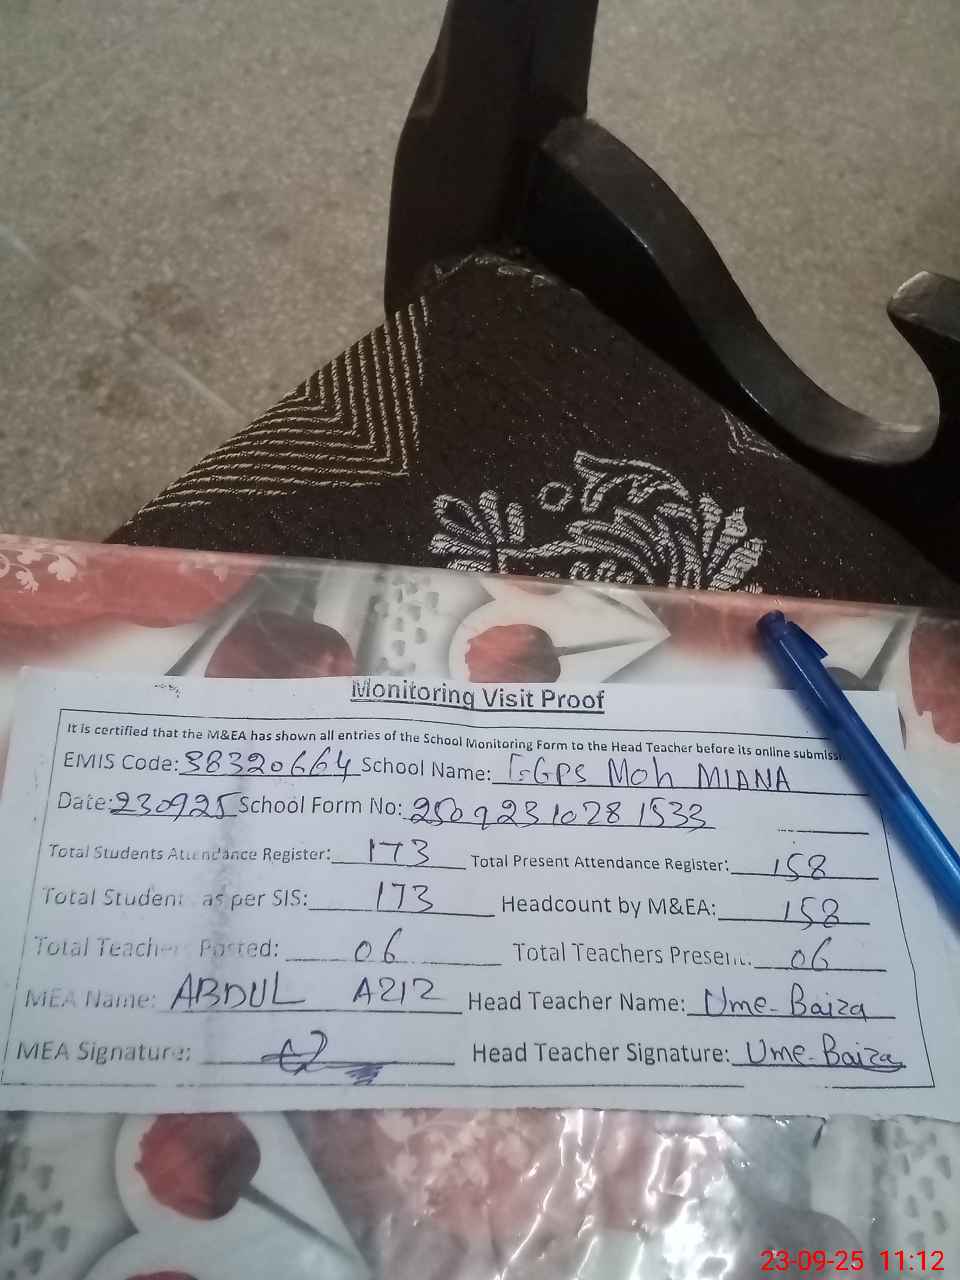 Monitoring Visit Proof
It is certified that the M&EA has shown all entries of the School Monitoring Form to the Head Teacher before its online submissi
EMIS Code: 38320664 School Name: GGPS Moh MIANA
Date: 230925 School Form No: 2509231028 1533
Total Students Attendance Register: 173 Total Present Attendance Register: 158
Total Student as per SIS: 173 Headcount by M&EA: 158
Total Teacher Posted: 06 Total Teachers Present: 06
MEA Name: ABDUL AZIZ Head Teacher Name: Ume-Baiza
MEA Signature: Head Teacher Signature: Ume-Baiza
23-09-25 11:12